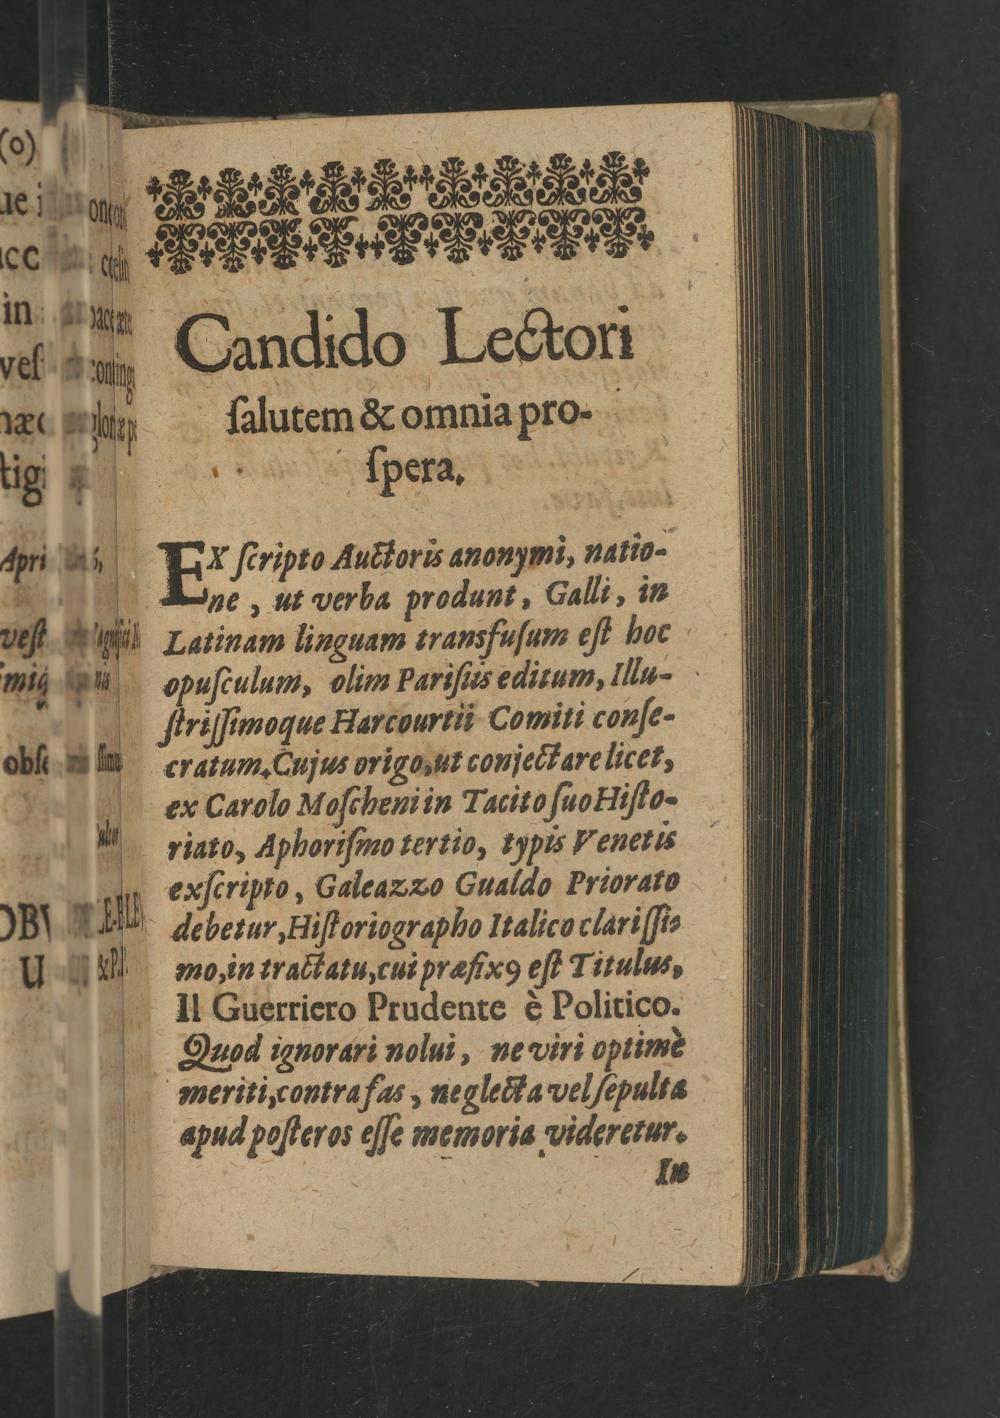 Candido Lectori
ſalutem & omnia pro-
ſpera.
EX ſcripto Auctoris anonymi, natio-
ne, ut verba produnt, Galli, in
Latinam linguam transfuſum eſt hoc
opuſculum, olim Pariſiis editum, Illu-
ſtriſſimoque Harcourtii Comiti conſe-
cratum. Cujus origo, ut conjectare licet,
ex Carolo Moſcheni in Tacito ſuo Hiſto-
riato, Aphoriſmo tertio, typis Venetis
exſcripto, Galeazzo Gualdo Priorato
debetur, Hiſtoriographo Italico clariſſi-
mo, in tractatu, cui præfixꝰ eſt Titulus,
Il Guerriero Prudente è Politico.
Quod ignorari nolui, ne viri optimè
meriti, contra fas, neglecta vel ſepulta
apud poſteros eſſe memoria videretur.
In
(o)
in
Apri
veſt
obſe
U